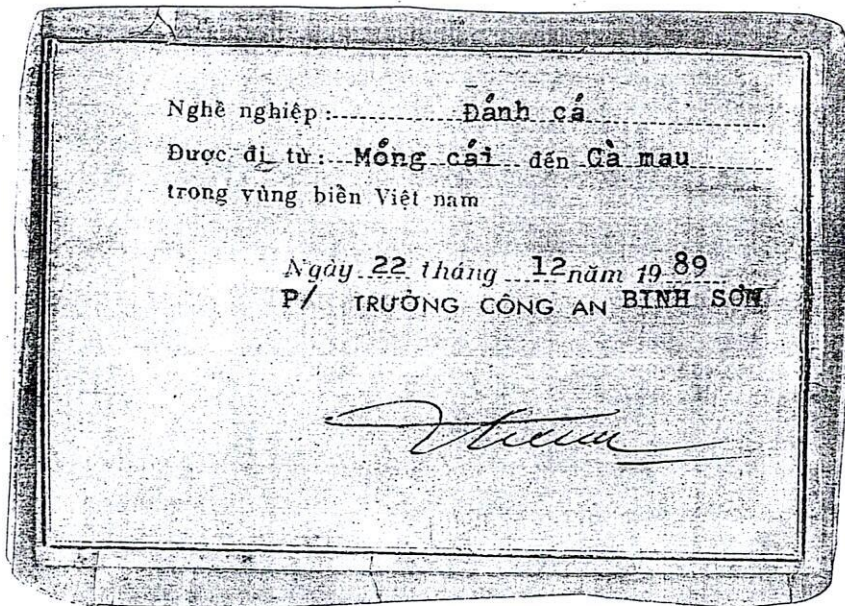 Nghề nghiệp: Đánh cá
Được đi từ: Mống cái đến Cà mau
trong vùng biển Việt nam
Ngày 22 tháng 12 năm 19 89
P/ TRƯỞNG CÔNG AN BINH SƠN